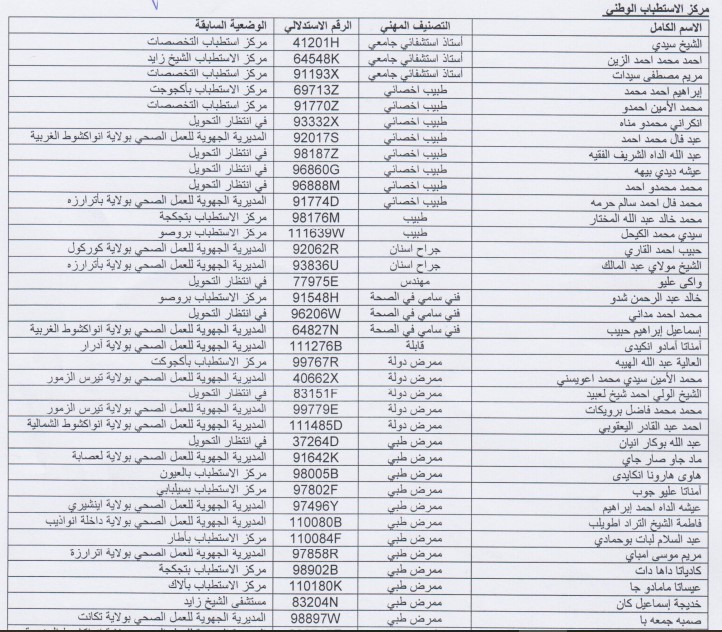 مركز الاستطباب الوطني
الاسم الكامل التصنيف المهني الرقم الاستدلالي الوضعية السابقة
الشيخ سيدي أستاذ استشفائي جامعي 41201H مركز استطباب التخصصات
احمد محمد احمد الزين أستاذ استشفائي جامعي 64548K مركز الاستطباب الشيخ زايد
مريم مصطفى سيدات أستاذ استشفائي جامعي 91193X مركز استطباب التخصصات
إبراهيم احمد محمد طبيب اخصائي 69713Z مركز الاستطباب بأكجوجت
محمد الأمين احمدو طبيب اخصائي 91770Z مركز استطباب التخصصات
انكراني محمدو مناه طبيب اخصائي 93332X في انتظار التحويل
عبد فال محمد احمد طبيب اخصائي 92017S المديرية الجهوية للعمل الصحي بولاية انواكشوط الغربية
عبد الله الداه الشريف الفقيه طبيب اخصائي 98187Z في انتظار التحويل
عيشه ديدي بيهه طبيب اخصائي 96860G في انتظار التحويل
محمد محمدو احمد طبيب اخصائي 96888M في انتظار التحويل
محمد فال احمد سالم حرمه طبيب اخصائي 91774D المديرية الجهوية للعمل الصحي بولاية بأترارزه
محمد خالد عبد الله المختار طبيب 98176M مركز الاستطباب بتجكجة
سيدي محمد الكيحل طبيب 111639W مركز الاستطباب بروصو
حبيب احمد القاري جراح اسنان 92062R المديرية الجهوية للعمل الصحي بولاية كوركول
الشيخ مولاي عبد المالك جراح اسنان 93836U المديرية الجهوية للعمل الصحي بولاية بأترارزه
واكى عليو مهندس 77975E في انتظار التحويل
خالد عبد الرحمن شدو فني سامي في الصحة 91548H مركز الاستطباب بروصو
محمد احمد مداني فني سامي في الصحة 96206W في انتظار التحويل
إسماعيل إبراهيم حبيب فني سامي في الصحة 64827N المديرية الجهوية للعمل الصحي بولاية انواكشوط الغربية
أمناتا أمادو انكيدى قابلة 111276B المديرية الجهوية للعمل الصحي بولاية أدرار
العالية عبد الله الهيبه ممرض دولة 99767R مركز الاستطباب بأكجوكت
محمد الأمين سيدي محمد اعويسني ممرض دولة 40662X المديرية الجهوية للعمل الصحي بولاية تيرس الزمور
الشيخ الولي احمد شيخ لعبيد ممرض دولة 83151F في انتظار التحويل
محمد محمد فاضل برويكات ممرض دولة 99779E المديرية الجهوية للعمل الصحي بولاية تيرس الزمور
احمد عبد القادر اليعقوبي ممرض دولة 111485D المديرية الجهوية للعمل الصحي بولاية انواكشوط الشمالية
عبد الله بوكار انيان ممرض طبي 37264D في انتظار التحويل
ماد جاو صار جاي ممرض طبي 91642K المديرية الجهوية للعمل الصحي بولاية لعصابة
هاوى هارونا انكايدى ممرض طبي 98005B مركز الاستطباب بالعيون
أمناتا عليو جوب ممرض طبي 97802F مركز الاستطباب بسيليبابي
عيشه الداه احمد إبراهيم ممرض طبي 97496Y المديرية الجهوية للعمل الصحي بولاية اينشيري
فاطمة الشيخ التراد اطويلب ممرض طبي 110080B المديرية الجهوية للعمل الصحي بولاية داخلة انواذيب
عبد السلام لبات بوحمادي ممرض طبي 110084F مركز الاستطباب بأطار
مريم موسى امباي ممرض طبي 97858R المديرية الجهوية للعمل الصحي بولاية اترارزة
كادياتا داها دات ممرض طبي 98902B مركز الاستطباب بتجكجة
عيساتا مامادو جا ممرض طبي 110180K مركز الاستطباب بألاك
خديجة إسماعيل كان ممرض طبي 83204N مستشفى الشيخ زايد
صمبه جمعه با ممرض طبي 98897W المديرية الجهوية للعمل الصحي بولاية تكانت